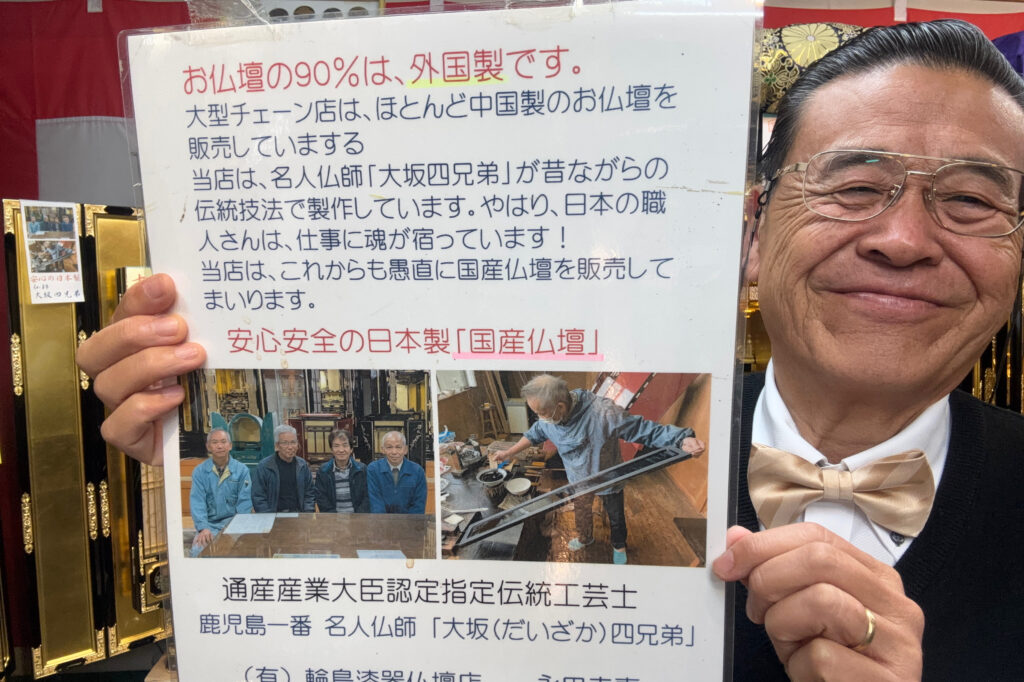 お仏壇の90%は、外国製です。
大型チェーン店は、ほとんど中国製のお仏壇を
販売していまする
当店は、名人仏師「大坂四兄弟」が昔ながらの
伝統技法で製作しています。やはり、日本の職
人さんは、仕事に魂が宿っています！
当店は、これからも愚直に国産仏壇を販売して
まいります。
安心安全の日本製「国産仏壇」
通産産業大臣認定指定伝統工芸士
鹿児島一番 名人仏師 「大坂(だいざか)四兄弟」
(有) 輪島漆器仏壇店
安心の日本製
仏師
大坂四兄弟